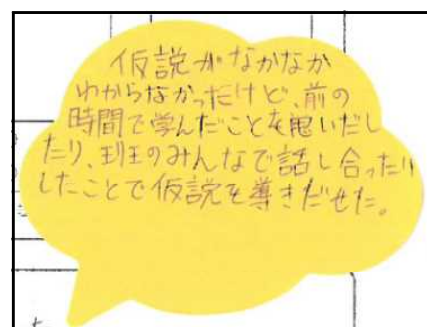 仮説がなかなか
わからなかっだけど、前の
時間で学んだことを思いだし
たり、班のみんなで話し合ったり
したことで仮説を導きだせた。